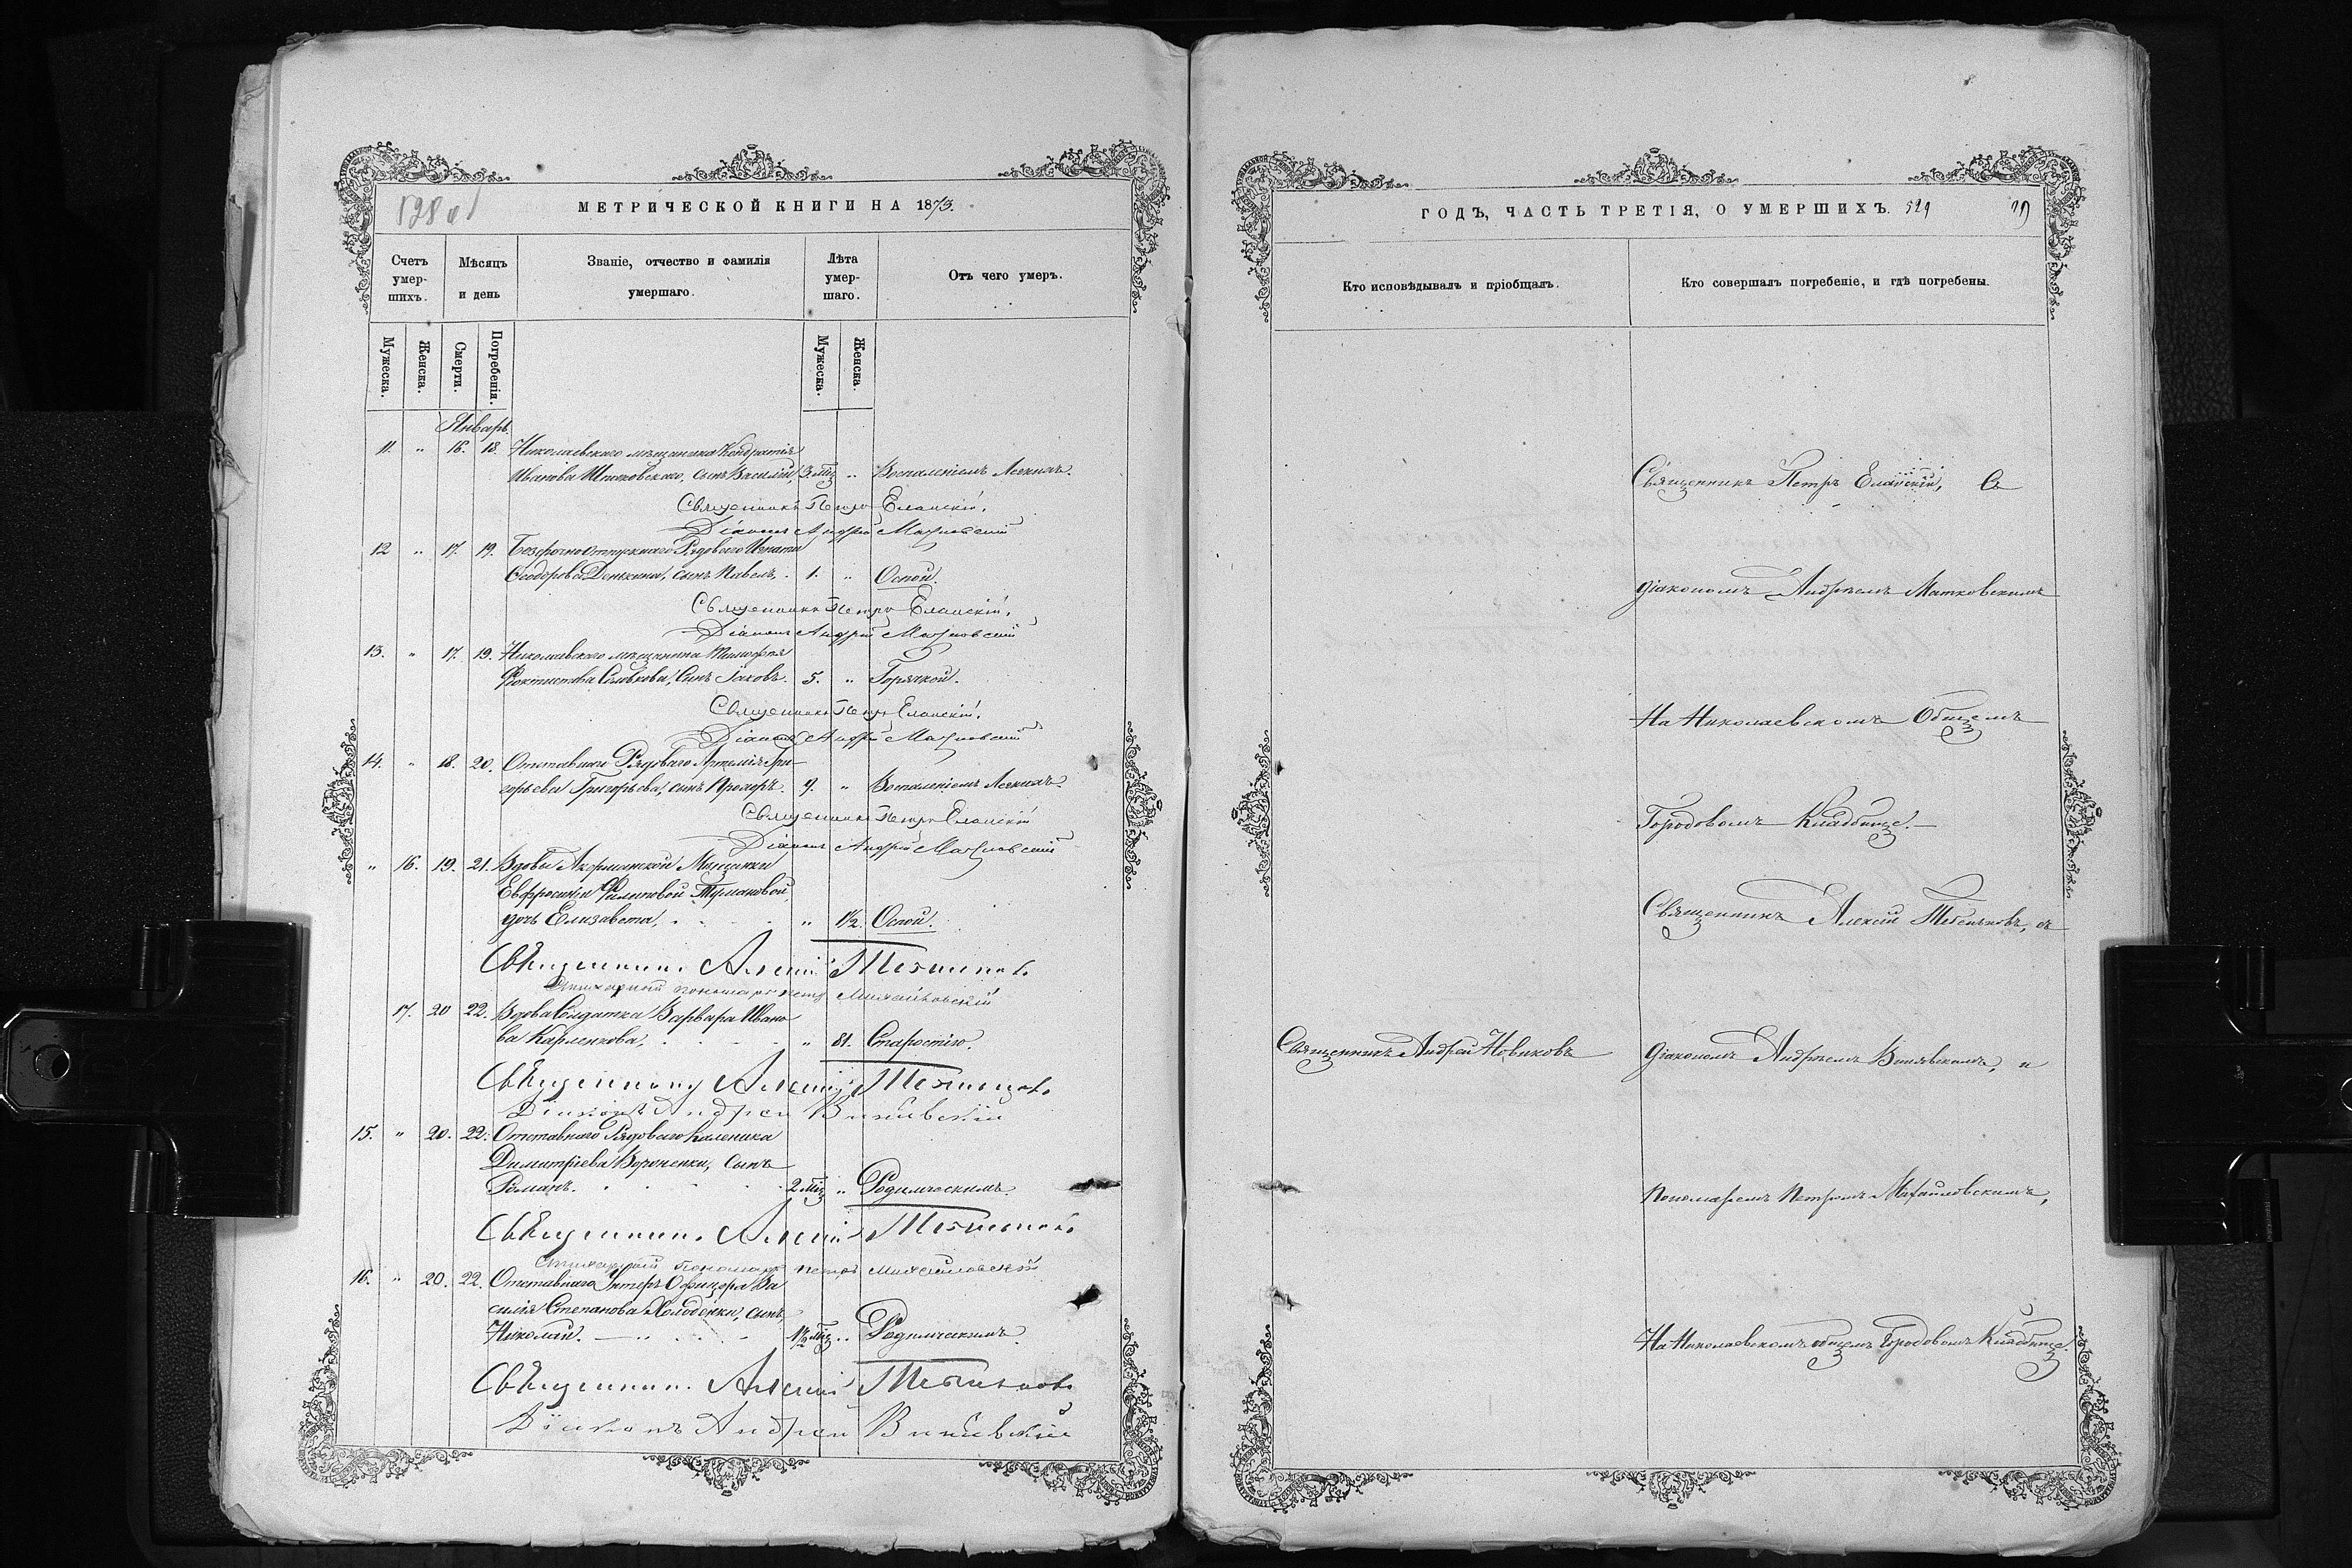 528 об
МЕТРИЧЕСКОЙ КНИГИ НА 1873.
Счетъ умер-шихъ.
Мѣсяцъ и день
Званіе, отчество и фамилія умершаго.
Лѣта умер-шаго.
Отъ чего умеръ.
Мужеска.
Женска.
Смерти.
Погребенія.
Мужеска.
Женска.
Январь.
11. " 16. 18. Николаевскаго мѣщанина Кондратія
Иванова сынъ Василій, 3 мѣс " Воспаленіемъ Легкихъ.
Священникъ Петръ Еланскій.
Діаконъ Андрей Матковскій
12 " 17. 19. Безсрочноотпускнаго Рядоваго Игнатія
Ѳеодорова Денькина, сынъ Павелъ, 1. " Оспой.
Священникъ Петръ Еланскій.
Діаконъ Андрей Матковскій
13. " 17. 19. Николаевскаго мѣщанина Тимофея
Сынъ Іаковъ. 5. " Горячкой.
Священникъ Петръ Еланскій.
Діаконъ Андрей Матковскій
14. " 18. 20. Отставнаго Рядоваго Артемія Гри-
горьева Григорьева, сынъ Прохоръ. 9. " Воспаленіемъ Легкихъ.
Священникъ Петръ Еланскій
Діаконъ Андрей Матковскій
" 16. 19. 21. Вдовы Мѣщанки
Евфросиніи Филиповой Тумановой,
дочь Елизавета, " 1½. Оспой.
Священникъ Алексій
Стихарный пономарь Петръ Михайловскій
17. 20 22. Вдова Солдатка Варвара Ивано
ва Карпенкова, " 81. Старостію.
Священникъ Алексій
Діаконъ Андрей
15. " 20. 22. Отставнаго Рядоваго Каленика
Димитріева Вороненки, сынъ
Романъ. 2 мѣс " Родимческимъ.
Священникъ Алексій
Стихарный Пономарь Петръ Михайловскій
16. " 20. 22. Отставнаго Унтеръ Офицера Ва
силія Степанова Холоденки, сынъ
Николай. 1½ мѣс " Родимческимъ.
Священникъ Алексій
Діаконъ Андрей
ГОДЪ, ЧАСТЬ ТРЕТІЯ, О УМЕРШИХЪ. 529 29
Кто исповѣдывалъ и пріобщалъ.
Кто совершалъ погребеніе, и гдѣ погребены.
Священникъ Петръ Еланскій, Съ
діакономъ Андреемъ Матковскимъ
На Николаевскомъ Общемъ
Городовомъ Кладбище.
Священникъ Алексій съ
Священникъ Андрей Новиковъ
діакономъ Андреемъ и
пономаремъ Петромъ Михайловскимъ,
На Николаевскомъ общемъ Городовомъ Кладбище.